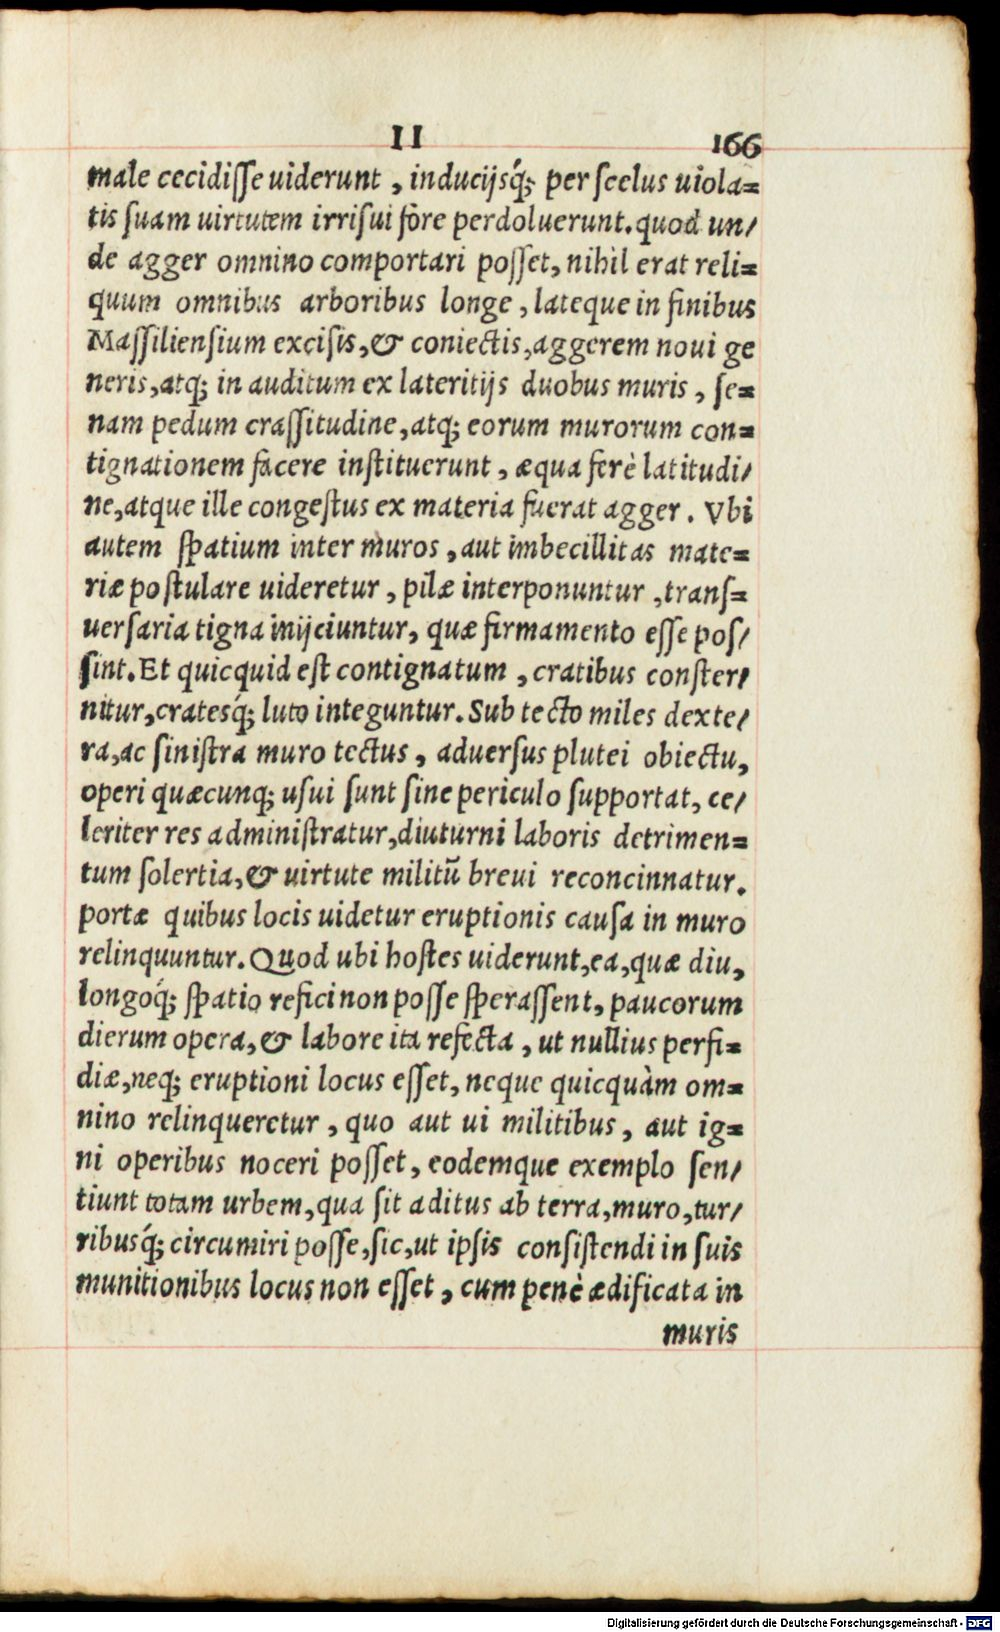 II
166
male cecidisse uiderunt, inducijsq́; per scelus uiola=
tis suam uirtutem irrisui fore perdoluerunt. quod un/
de agger omnino comportari posset, nihil erat reli=
quum omnibus arboribus longe, lateque in finibus
Massiliensium excisis, & coniectis, aggerem noui ge
neris, atq; in auditum ex lateritijs duobus muris, se=
nam pedum crassitudine, atq; eorum murorum con=
tignationem facere instituerunt, æqua ferè latitudi/
ne, atque ille congestus ex materia fuerat agger. Vbi
autem spatium inter muros, aut imbecillitas mate=
riæ postulare uideretur, pilæ interponuntur, trans=
uersaria tigna inijciuntur, quæ firmamento esse pos/
sint. Et quicquid est contignatum, cratibus conster/
nitur, cratesq́; luto integuntur. Sub tecto miles dexte/
ra, ac sinistra muro tectus, aduersus plutei obiectu,
operi quæcunq; usui sunt sine periculo supportat, ce/
leriter res administratur, diuturni laboris detrimen=
tum solertia, & uirtute militū breui reconcinnatur.
portæ quibus locis uidetur eruptionis causa in muro
relinquuntur. Quod ubi hostes uiderunt, ea, quæ diu,
longoq́; spatio refici non posse sperassent, paucorum
dierum opera, & labore ita refecta, ut nullius perfi=
diæ, neq; eruptioni locus esset, neque quicquàm om=
nino relinqueretur, quo aut ui militibus, aut ig=
ni operibus noceri posset, eodemque exemplo sen/
tiunt totam urbem, qua sit aditus ab terra, muro, tur/
ribusq́; circumiri posse, sic, ut ipsis consistendi in suis
munitionibus locus non esset, cum penè ædificata in
muris
Digitalisierung gefördert durch die Deutsche Forschungsgemeinschaft - DFG